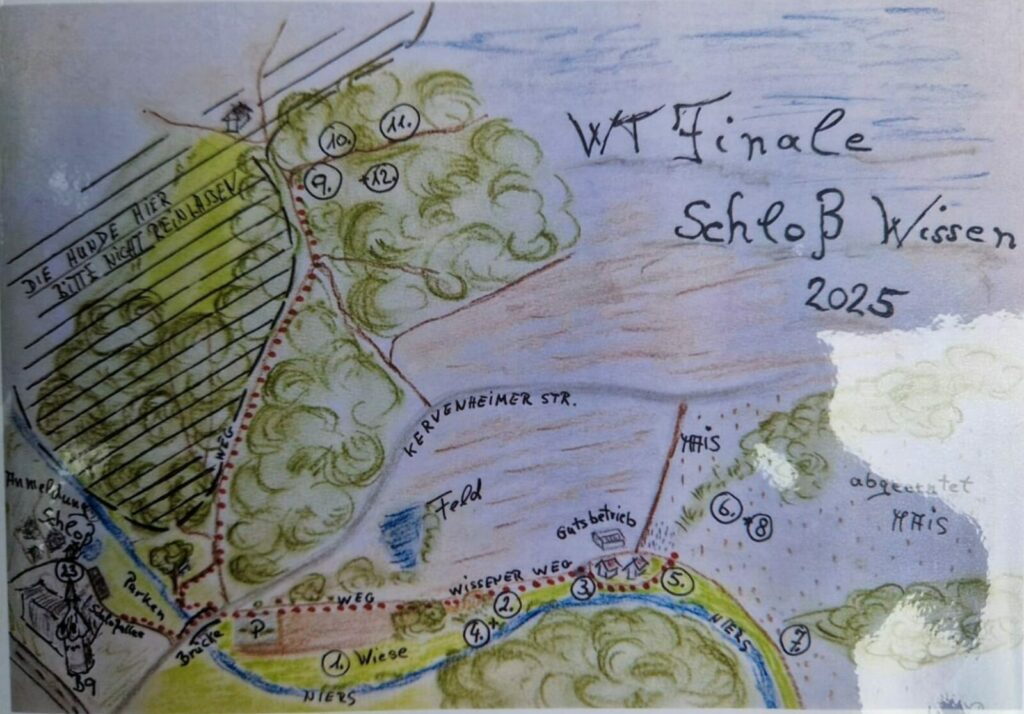 WT Finale
Schloß Wissen
2025
10.
11.
9.
12.
DIE HUNDE HIER
BITTE NICHT REINLASSEN
WEG
KERVENHEIMER STR.
MAIS
abgeerntet
MAIS
Feld
Gutsbetrieb
6.
8
Anmeldung
Schloß
13
Parken
Schloßallee
Brücke
B9
P
WEG
WISSENER WEG
3.
5.
2.
4.
1.
Wiese
NIERS
NIERS
7.